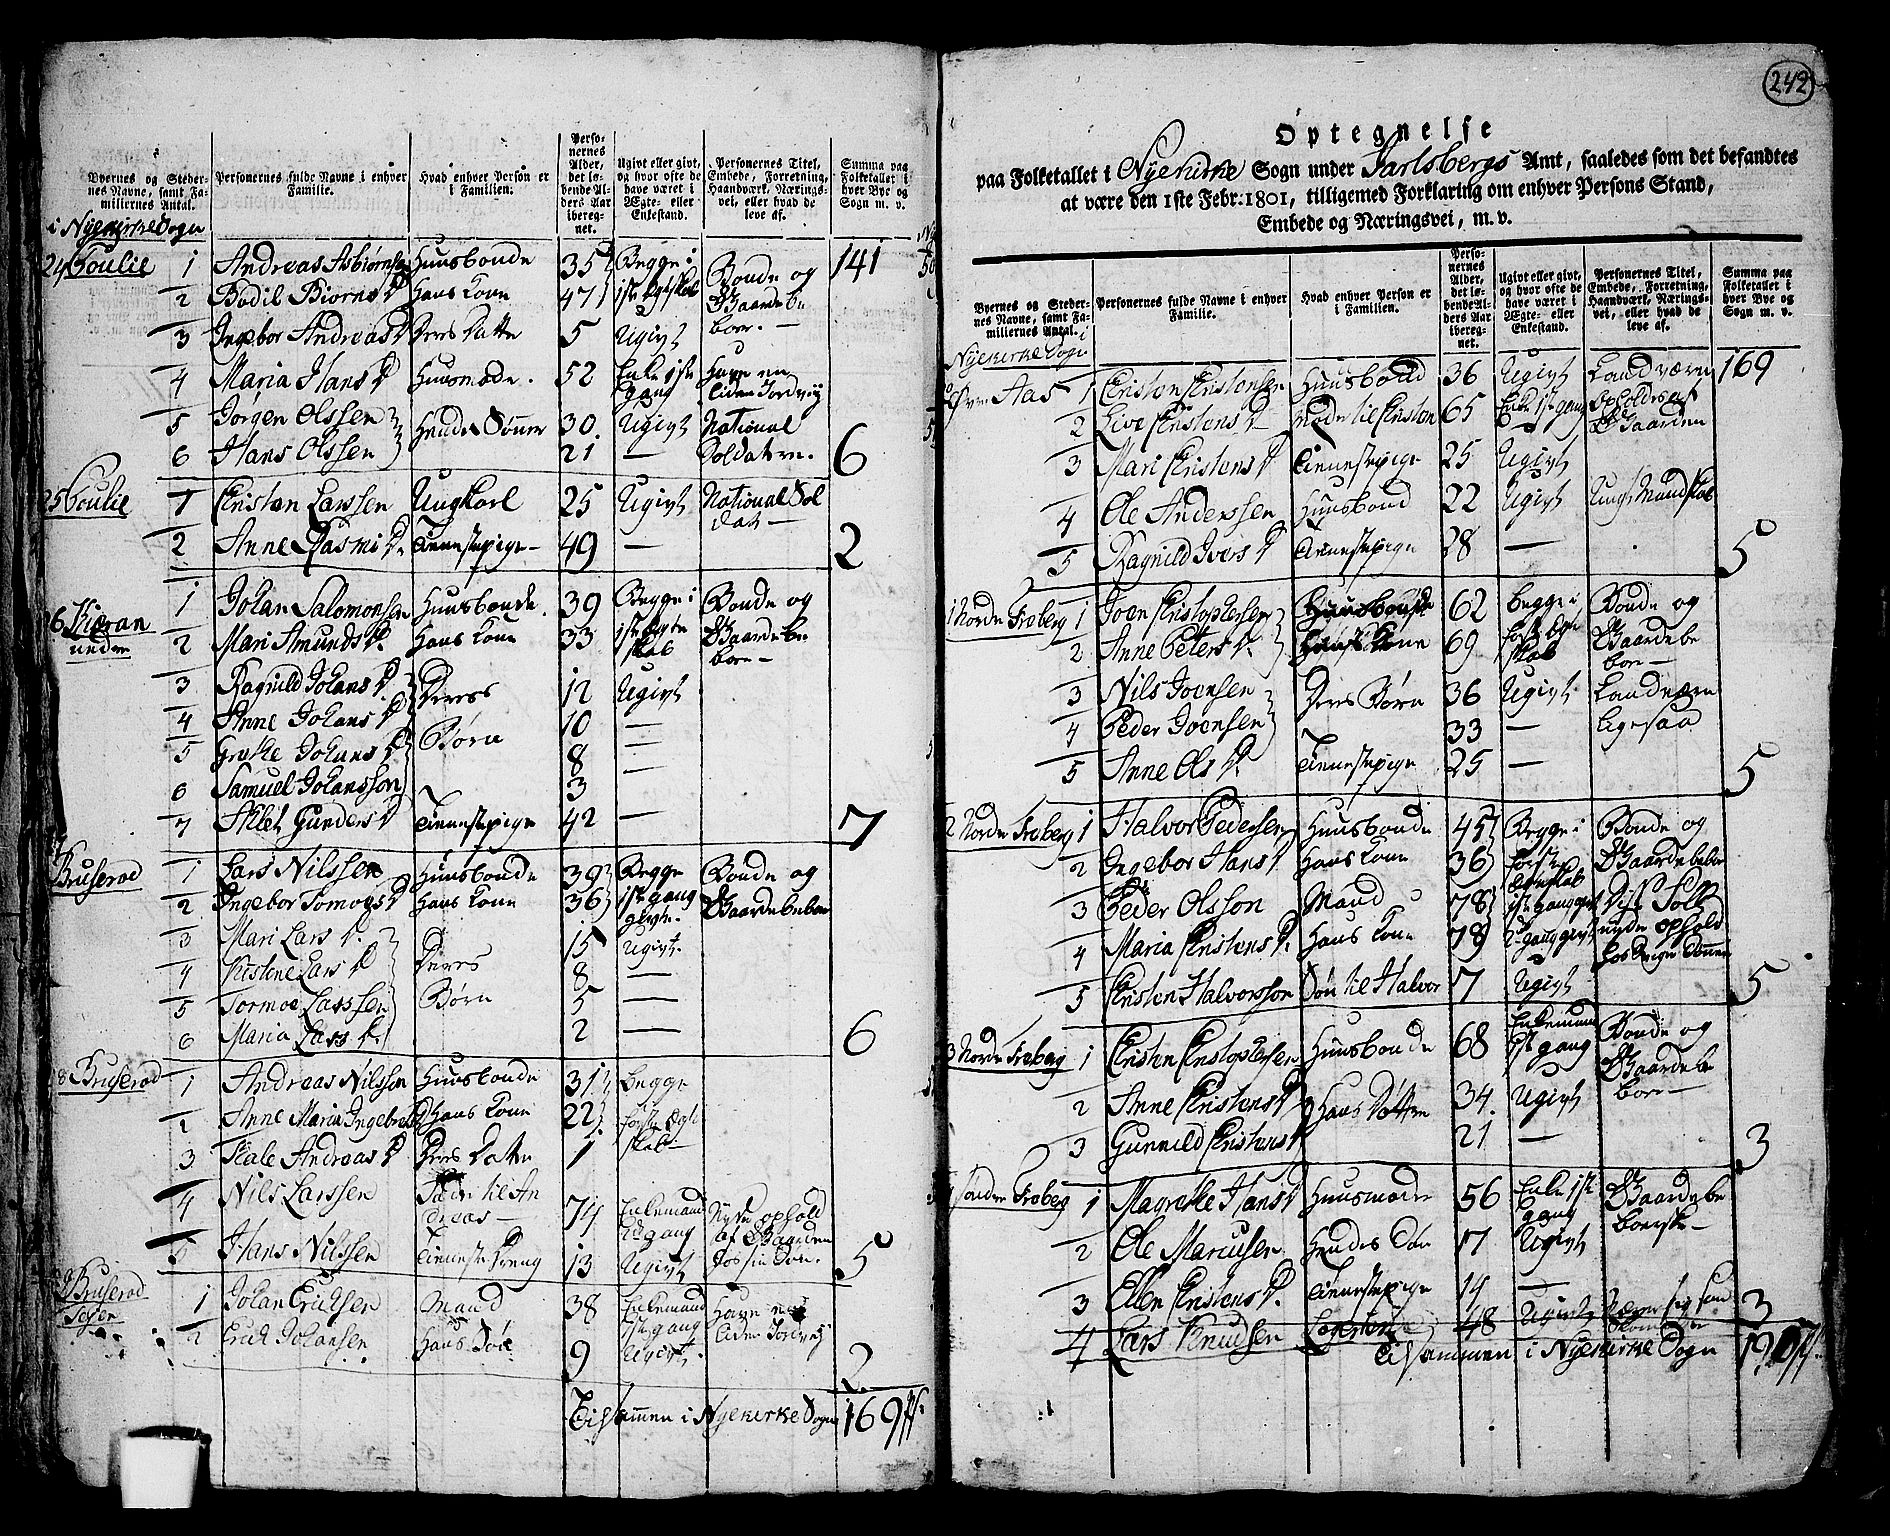 Byernes og Steder-
nes Navne, samt Fa-
miliernes Antal.
Personernes fulde Navne i enhver
Familie.
Hvad enhver Person er
i Familien.
Perso-
nernes
Alder,
det lø-
bende Al-
ders Aar
ibereg-
net.
Ugivt eller givt,
og hvor ofte de
have været i
Ægte- eller
Enkestand.
Personernes Titel,
Embede, Forretning,
Haandværk, Nærings-
vei, eller hvad de
leve af.
Summa paa
Folketallet i
hver Bye og
Sogn m. v.
i Nyekirke Sogn
24 1 Andreas Asbiørnsen Huusbonde 35 Begge i Bonde og 141
2 Bodil Biørns D Hans Kone 47 1ste Egteskab Gaardebe
3 Ingebor Andreas D Deres Datter 5 Ugivt boer.
4 Maria Hans D Huusmoder. 52 Enke 1ste gang Have en liden Jordvej
5 Jørgen Olssen Hendes Sønner 30 Ugivt National
6 Hans Olssen 21 — Soldatere. 6
25 1 Kristen Larssen Ungkarl 25 Ugivt National Sol
dat —
2 Anne Rasmi D. Tienestepige 49 — 2
26 1 Johan Salomonsen Huusbonde. 39 Begge i Bonde og
nedre 2 Mari Amunds D. Hans Kone 33 1ste Egte Gaardebe
skab boer
3 Ragnild Johans D Deres 12 Ugivt
4 Anne Johans D Børn 10 —
5 Grethe Johans D 8 —
6 Samuel Johansson 3 —
7 Gunders D Tienestepige 42 — 7
Bruserød 1 Lars Nilssen Huusbonde 39 Begge Bonde og
2 Ingebor Tomoes D Hans Kone 36 1ste gang Gaardebeboer
givt.
3 Mari Lars D. Deres 15 Ugivt
4 Kirstene Lars D Børn 8 —
5 Tormoe Larssen 5 —
6 Maria Lars D. 2 — 6
8 Bruserød 1 Andreas Nilssen Huusbonde 31 begge
2 Anne Maria Ingebrets D Hans Kone 22 første Egte
skab
3 Andreas D Deres Datter 1
4 Nils Larssen Fader til An
dreas 74 Enkemand gang Nyde ophold af Gaarden hos sin Søn.
5 Hans Nilssen Tienestedreng 13 Ugivt 5
9 Bruserød
1 Johan Ericksen Mand 38 Enkemand 1ste gang Have en liden Jordvej
2 Erick Johansen Hans Søn 9 Ugivt. 2
Tilsammen i Nyekirke Sogn 169
242
Optegnelse
paa Folketallet i Nyekirke Sogn under Jarlsbergs Amt, saaledes som det befandtes
at være den 1ste Febr. 1801, tilligemed Forklaring om enhver Persons Stand,
Embede og Næringsvei, m. v.
Byernes og Steder-
nes Navne, samt Fa-
miliernes Antal.
Personernes fulde Navne i enhver
Familie.
Hvad enhver Person er
i Familien.
Perso-
nernes
Alder,
det lø-
bende Al-
ders Aar
ibereg-
net.
Ugivt eller givt,
og hvor ofte de
have været i
Ægte- eller
Enkestand.
Personernes Titel,
Embede, Forretning,
Haandværk, Nærings-
vei, eller hvad de
leve af.
Summa paa
Folketallet i
hver Bye og
Sogn m. v.
i Nyekirke Sogn
Øvre Aas 1 Kristen Kristensen Huusbond 36 Ugivt Landværn 169
2 Live Kristens D Moder til Kristen 65 Enke 1ste gang opholdes af Gaarden
3 Mari Kristens D Tienestepige 25 Ugivt
4 Ole Anderssen Huusbond 22 Ugivt Ungt Mandskab
5 Ragnild Ivers D Tienestepige 28 — 5
1 Nordre Froberg 1 Joen Kristophersen Huusbonde 62 begge i Bonde og
2 Anne Peters D. Hans Kone 69 første Egte
skab Gaardebe
boer
3 Nils Joensen Deres Børn 36 Ugivt. Landværn
4 Peder Joensen 33 — ligesaa
5 Anne Ols D. Tienestepige 25 — 5
2 Nordre Froberg 1 Halvor Pedersen Huusbonde 45 Begge i Bonde og
2 Ingebor Hans D Hans Kone 36 første Gaardebeboer
3 Peder Olsson Mand 78 1ste gang givt Disse Folk
4 Maria Kristens D. Hans Kone 78 2 gang givt nyde ophold
5 Kristen Halvorsson Søn til Halvor 7 Ugivt 5
3 Nordre Froberg 1 Kristen Kristophersen Huusbonde 68 Enkemand
1ste gang Bonde og
Gaardebe
boer
2 Anne Kristens D Hans Døttre 34. Ugivt
3 Gunnild Kristens D 21 — 3
Søndre Froberg 1 Magrethe Hans D Huusmoder 56 Enke 1ste
gang Gaardebe
boerske
2 Ole Mariusen Hendes Søn 17 Ugivt
3 Ellen Kristens D. Tienestepige 14 — 3
4 Lars Knudsen 48 Ugivt
Tilsammen i Nyekirke Sogn